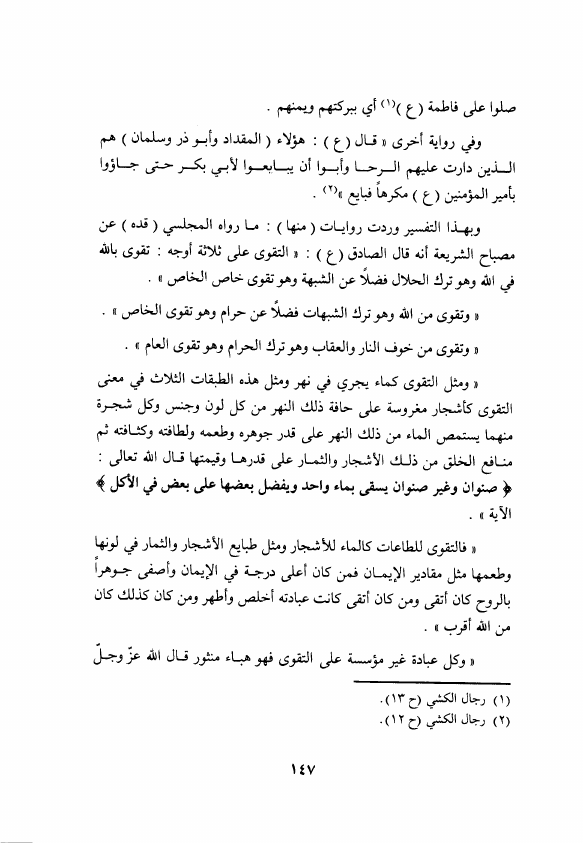 صلوا على فاطمة (ع)(١) أي ببركتهم ويمنهم .
وفي رواية أخرى « قال (ع) : هؤلاء ( المقداد وأبو ذر وسلمان ) هم
الذين دارت عليهم الرحا وأبوا أن يبايعوا لأبي بكر حتى جاؤوا
بأمير المؤمنين (ع) مكرهاً فبايع »(٢) .
وبهذا التفسير وردت روايات ( منها ) : ما رواه المجلسي ( قده ) عن
مصباح الشريعة أنه قال الصادق (ع) : « التقوى على ثلاثة أوجه : تقوى بالله
في الله وهو ترك الحلال فضلًا عن الشبهة وهو تقوى خاص الخاص » .
« وتقوى من الله وهو ترك الشبهات فضلًا عن حرام وهو تقوى الخاص » .
« وتقوى من خوف النار والعقاب وهو ترك الحرام وهو تقوى العام » .
« ومثل التقوى كماء يجري في نهر ومثل هذه الطبقات الثلاث في معنى
التقوى كأشجار مغروسة على حافة ذلك النهر من كل لون وجنس وكل شجرة
منهما يستمص الماء من ذلك النهر على قدر جوهره وطعمه ولطافته وكثافته ثم
منافع الخلق من ذلك الأشجار والثمار على قدرها وقيمتها قال الله تعالى :
﴿ صنوان وغير صنوان يسقى بماء واحد ويفضل بعضها على بعض في الأكل ﴾
الآية » .
« فالتقوى للطاعات كالماء للأشجار ومثل طبايع الأشجار والثمار في لونها
وطعمها مثل مقادير الإيمان فمن كان أعلى درجة في الإيمان وأصفى جوهراً
بالروح كان أتقى ومن كان أتقى كانت عبادته أخلص وأطهر ومن كان كذلك كان
من الله أقرب » .
« وكل عبادة غير مؤسسة على التقوى فهو هباء منثور قال الله عزّ وجلّ
(١) رجال الكشي (ح ١٣).
(٢) رجال الكشي (ح ١٢).
١٤٧